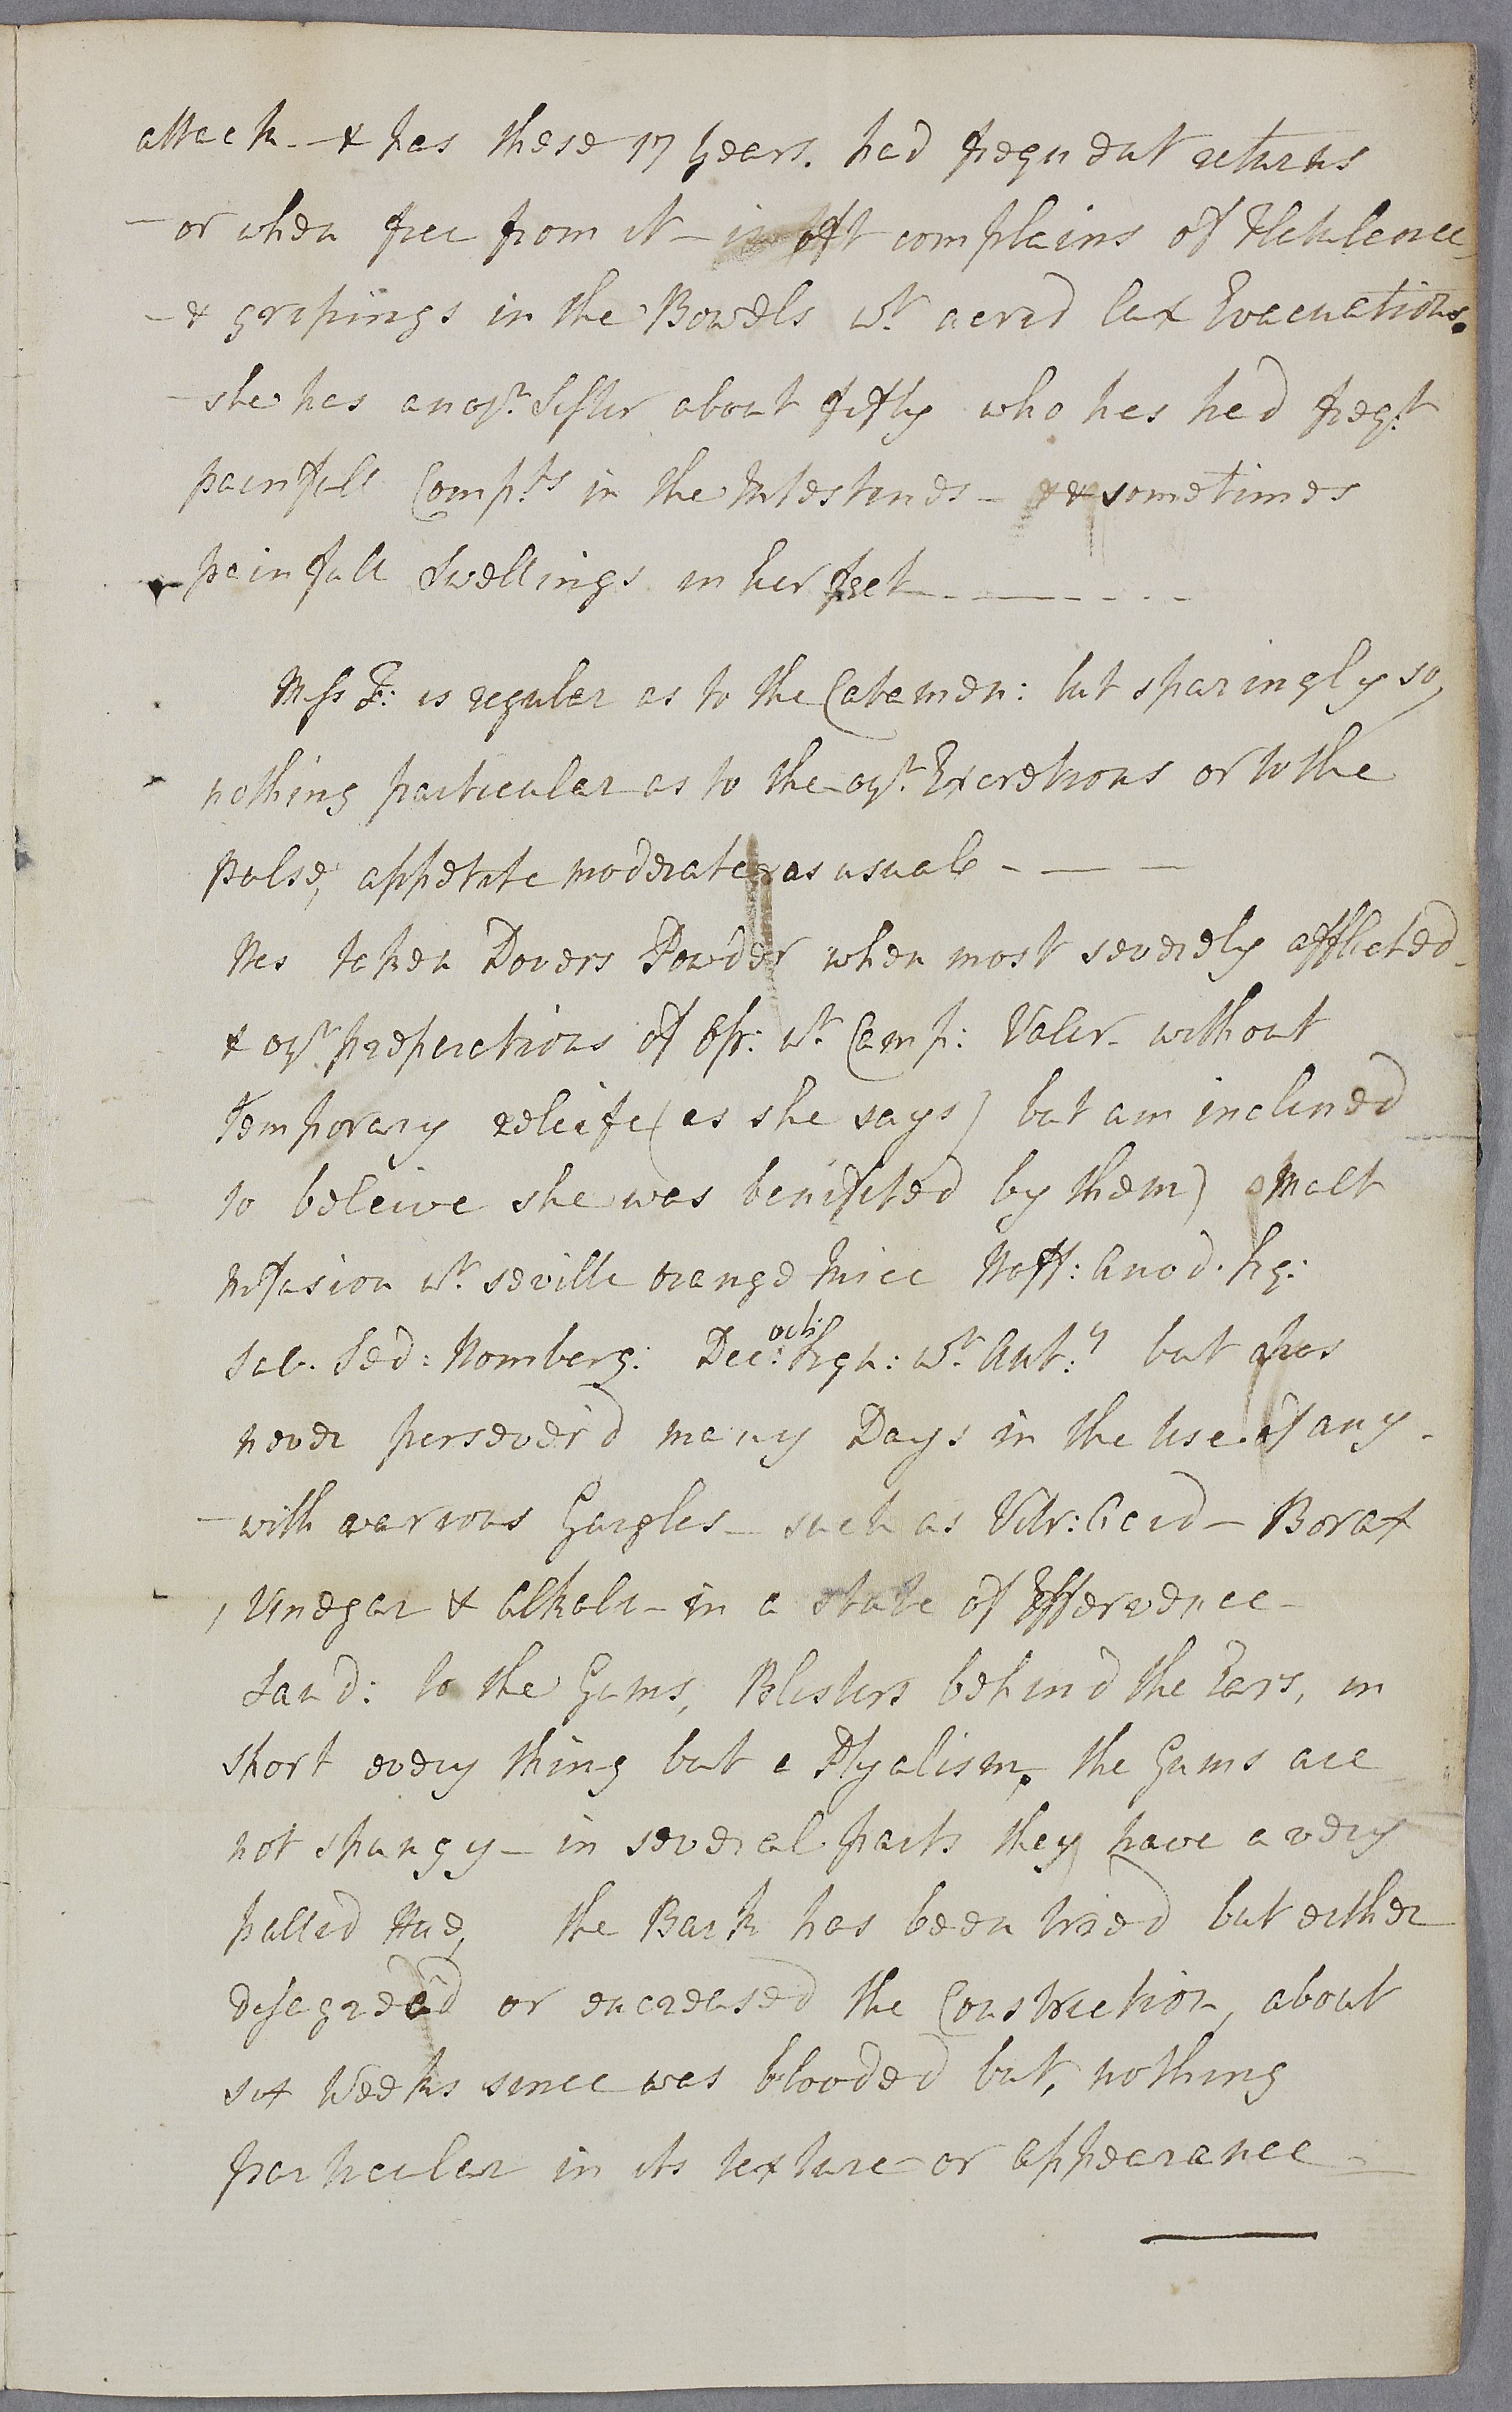 attack - & has these 17 years. had frequent returns
- or when free from it - is oft complains of Flatulence
- & gripings in the Bowels wt. acrid lax Evacuations.
- she has anoyr. Sister about fifty who has had freqt.
painfull Compts. in the Intestines - & sometimes
painfull Swellings in her feet - - - - -
Miss F: is regular as to the Catamen: but sparingly so,
nothing particular as to the oyr. Excretions or to the
pulse, appetite moderate as usual - - -
Has taken Dovers Powder when most severely afflicted -
& oyr. preperations of Op: wt. Camp: Valer. without
temporary releife (as she says) but am inclined
to beleive she was benifited by them) Malt
Infusion wt. seville orange Juice Hoff: Anod. liq:
Sal. Sed: Homberg: Dec:octi: lign: wt. Ant:y but has
never persever'd many Days in the use of any -
- with various Gargles - such as Vitr: Acid - Borax
, Vinegar & Alkali - in a state of Effervence -
Laud: to the Gums, Blisters behind the Ears, in
short every thing but a Ptyalism. the Gums are
not spungy - in several parts they have a very
pallid Hue, the Bark has been tried but either
disagreed or encreased the Constriction, about
six Weeks since was blooded but, nothing
particular in its texture or appearance -